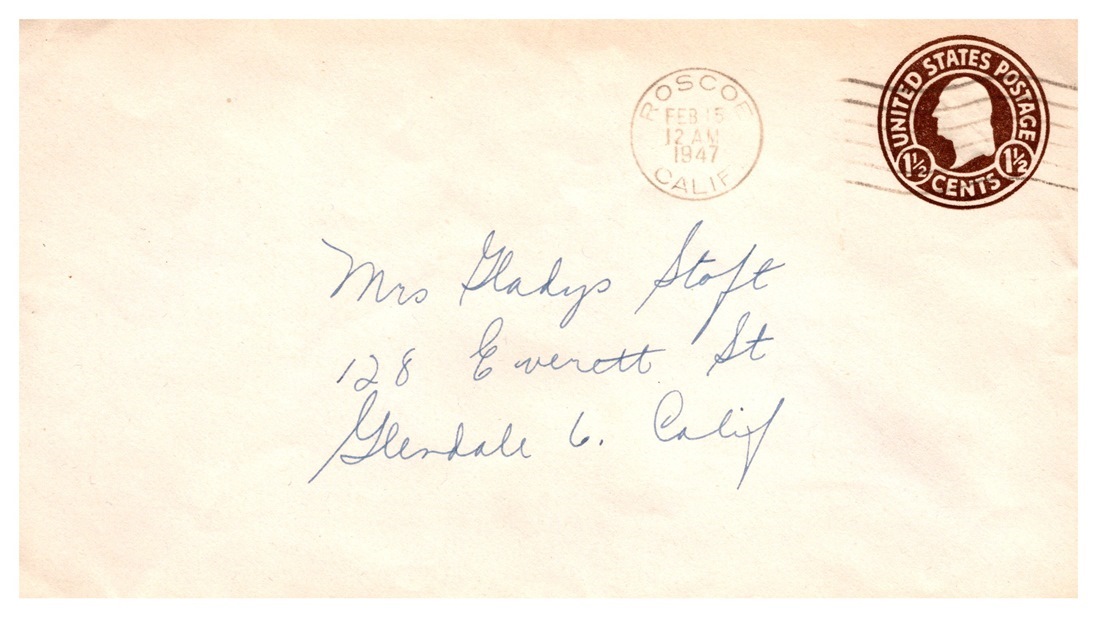 ROSCOE
FEB 15
12 AM
1947
CALIF
UNITED STATES POSTAGE
1½ CENTS 1½
Mrs Gladys Stoft
128 Everett St
Glendale 6. Calif